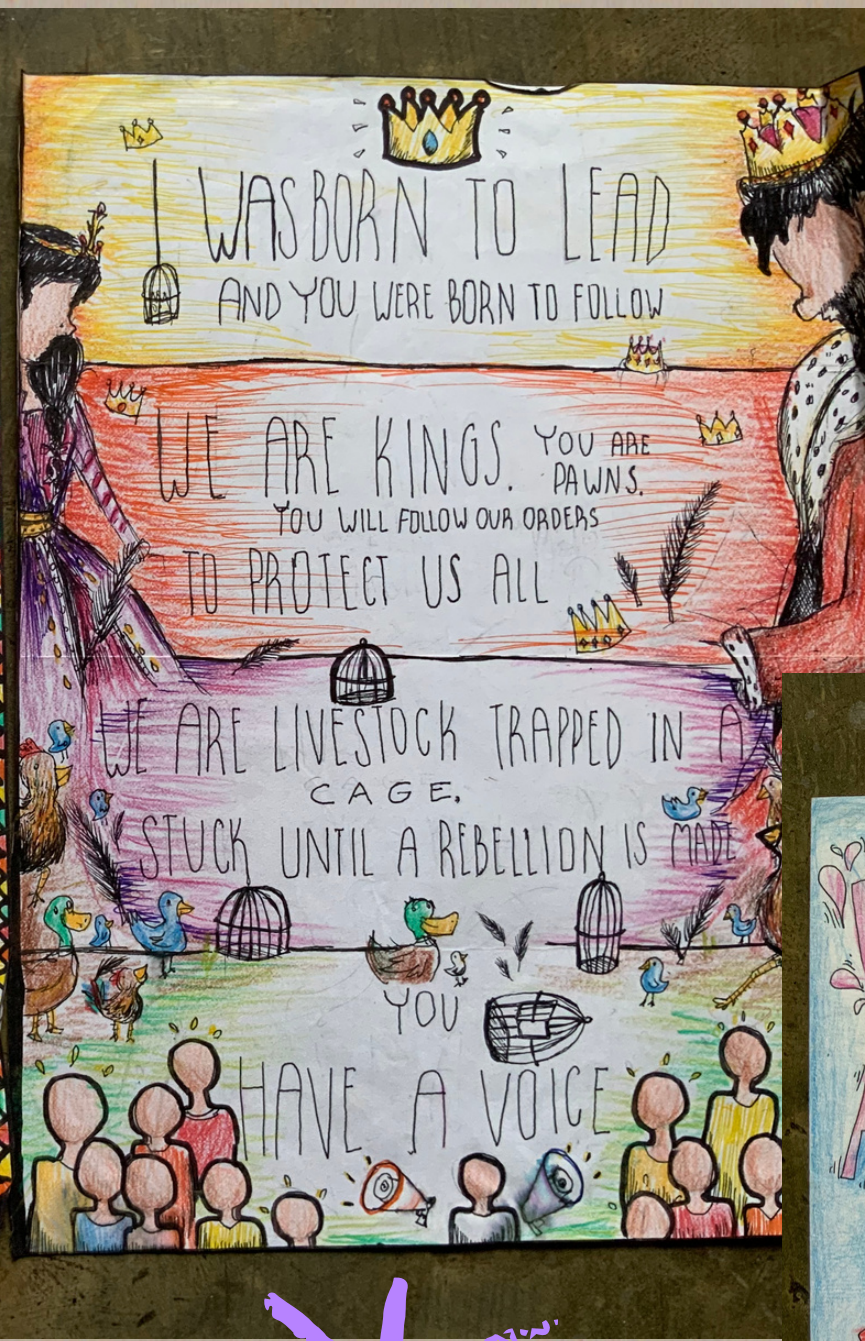 I WAS BORN TO LEAD
AND YOU WERE BORN TO FOLLOW
WE ARE KINGS. YOU ARE
PAWNS.
YOU WILL FOLLOW OUR ORDERS
TO PROTECT US ALL
WE ARE LIVESTOCK TRAPPED IN A
CAGE.
STUCK UNTIL A REBELLION IS MADE
YOU
HAVE A VOICE